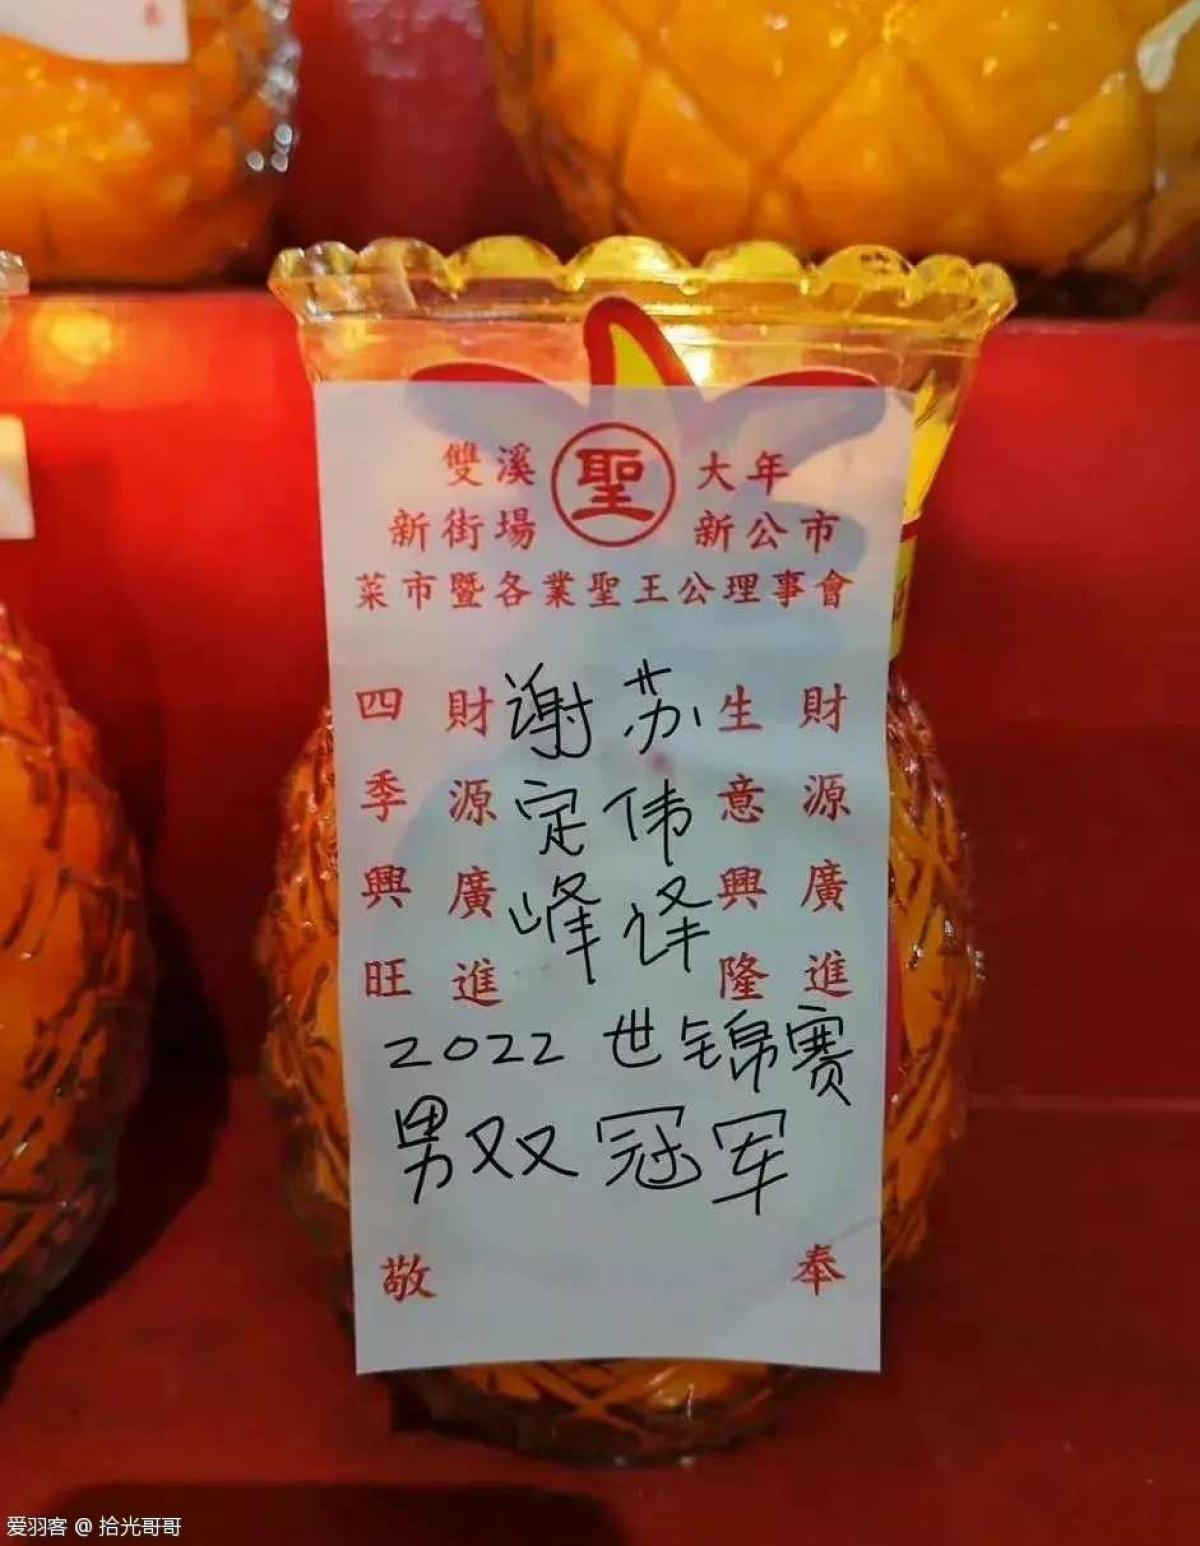 雙溪 聖 大年
新街場 新公市
菜市暨各業聖王公理事會
財源廣進
生意興隆
苏伟译
谢定峰
財源廣進
四季興旺
2022 世锦赛
男双冠军
敬 奉
爱羽客 @ 拾光哥哥